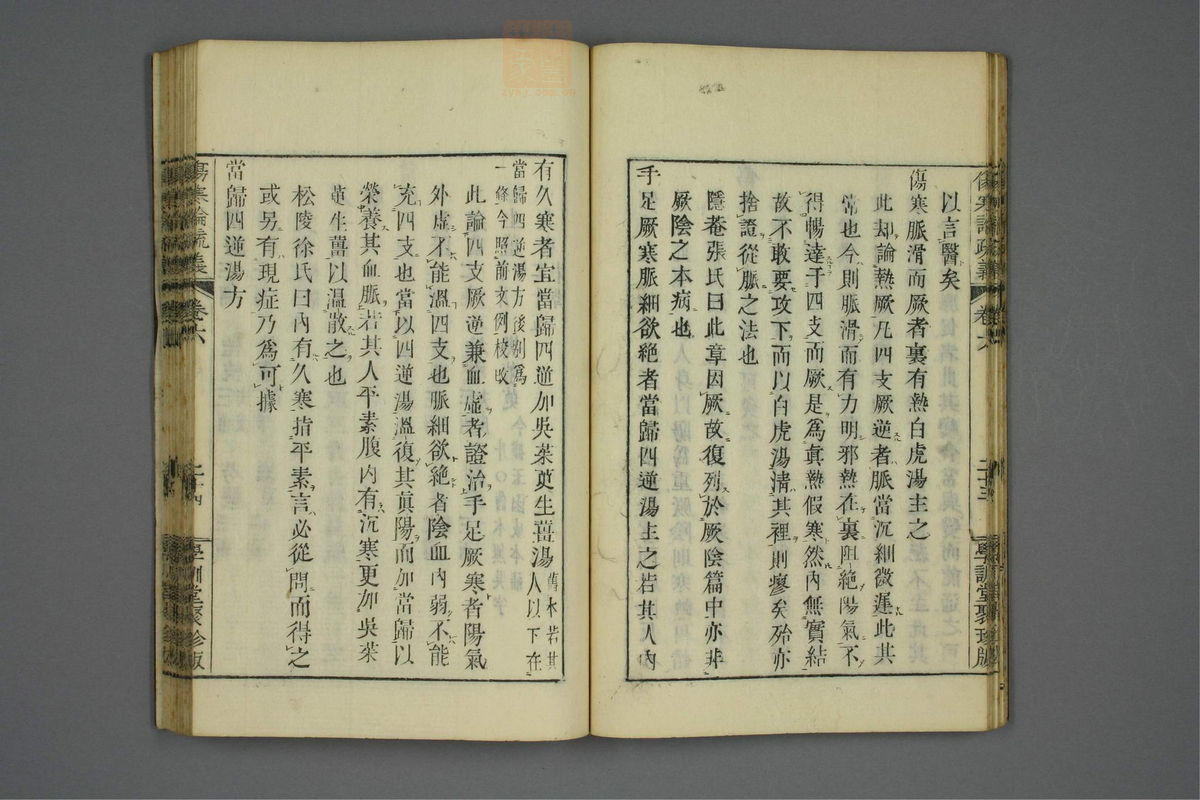 傷寒論疏義
卷六
二十三
學訓堂聚珍版
以言醫矣
傷寒脈滑而厥者裏有熱白虎湯主之
此却論熱厥凡四支厥逆者脈當沉細微遲此其
常也今則脈滑而有力明邪熱在裏阻絶陽氣不
得暢達于四支而厥是爲眞熱假寒然內無實結
故不敢要攻下而以白虎湯淸其裡則瘳矣殆亦
捨證從脈之法也
隱菴張氏曰此章因厥故復列於厥陰篇中亦非
厥陰之本病也
手足厥寒脈細欲絶者當歸四逆湯主之若其人內
有久寒者宜當歸四逆加吳茱萸生薑湯舊本若其人以下在
當歸四逆湯方後別爲
一條今照前文例校改
此論四支厥逆兼血虛者證治手足厥寒者陽氣
外虛不能溫四支也脈細欲絶者陰血內弱不能
充四支也當以四逆湯溫復其眞陽而加當歸以
榮養其血脈若其人平素腹內有沉寒更加吳茱
萸生薑以溫散之也
松陵徐氏曰內有久寒指平素言必從問而得之
或另有現症乃爲可據
當歸四逆湯方
傷寒論疏義
卷六
二十四
學訓堂聚珍版